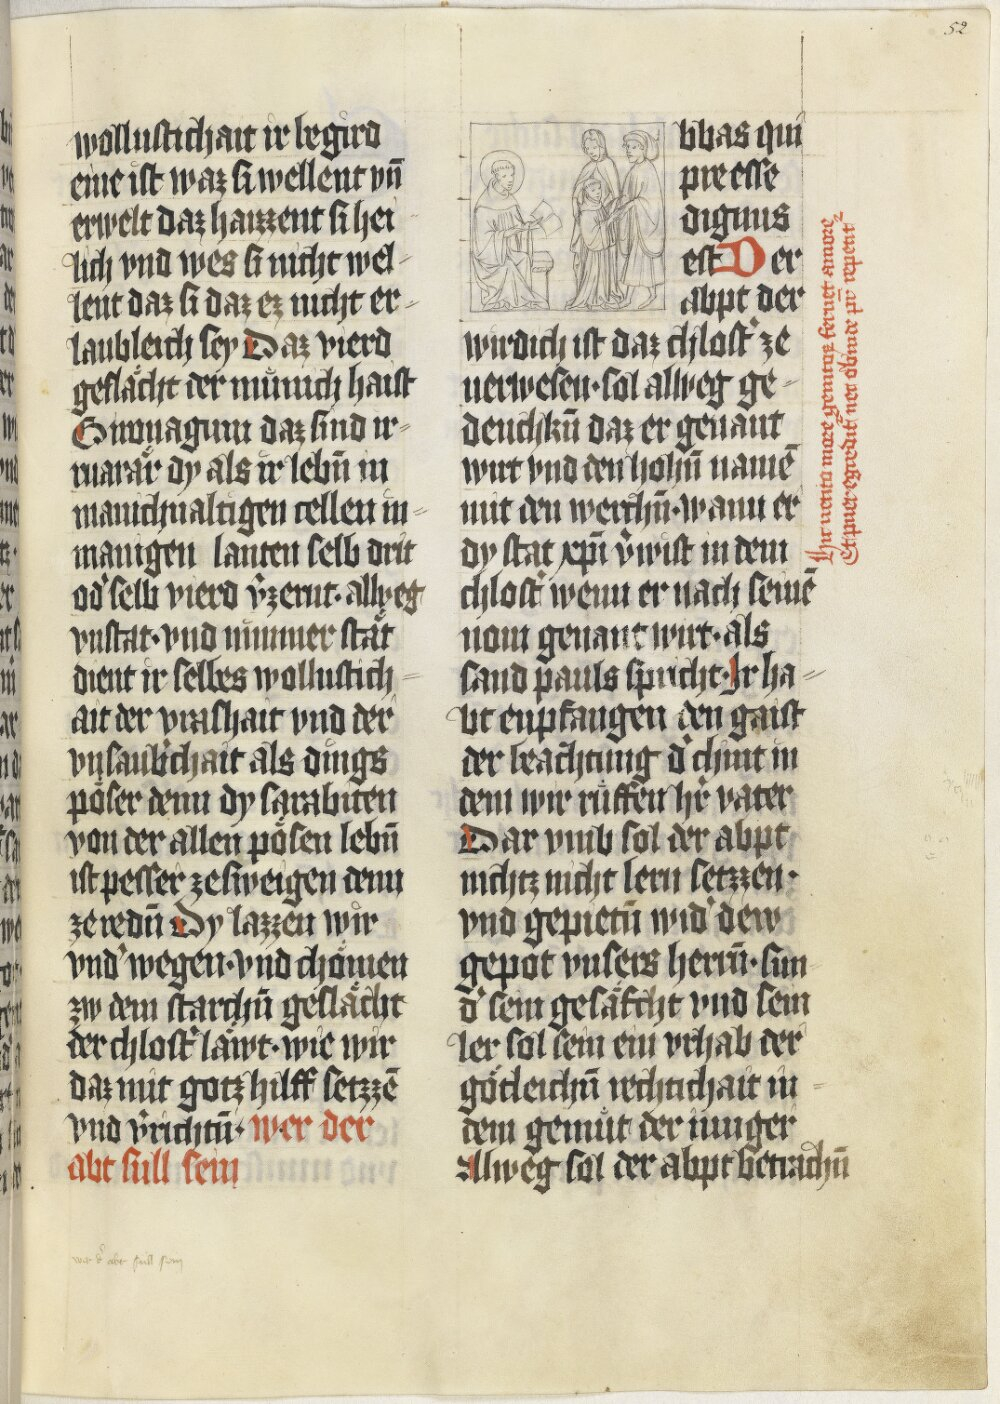 52
wollustichait ir begird
eine ist waz si wellent vn̄
erwelt daz haizzent si hei
lich vnd wes si nicht wel-
lent daz si daz ez nicht er-
laubleich sey Daz vierd
geslächt der münich haist
Girouagum daz sind ir-
rarär dy als ir lebn̄ in
manichualtigen cellen in-
manigen lanten selb drit
od' selb vierd v̄zernt· allweg
vnstat· vnd nimmer stät
dient ir selbes wollustich-
ait der vrashait vnd der
vnsaubchait als dings
pöser denn dy sarabiten
von der allen pösen lebn̄
ist pesser ze sweigen denn
ze redn̄ Dy lazzen wir
vnd' wegen· vnd chömen
zw dem starchn̄ geslächt
der chlost' läwt· wie wir
daz mit gotz hilff setzzē
vnd v̄richtn̄· wer der
abt sull sein
wer d' abt sull sein
bbas qui
pre esse
dignus
est Der
abpt der
wirdich ist daz chlost' ze
uerwesen· sol allweg ge-
denchkn̄ daz er genant
wirt vnd den hohn̄ namē
mit den werchn̄· wann er
dy stat xp̄i v̄wist in dem
chlost' wenn er nach seinē
nom genant wirt· als
sand pauls spricht· Ir ha-
bt enpfangen den gaist
der beachtung d' chint in
dem wir rüffen h'r vater
Dar vmb sol der abpt
nichtz nicht lern setzzen·
vnd gepietn̄ wid' dew
gepot vnsers herrn̄· sun
d' sein gesäfcht vnd sein
ler sol sein ein vrhab der
götleichn̄ rechtichait in-
dem gemüt der iunger
Allweg sol der abpt betrachn̄